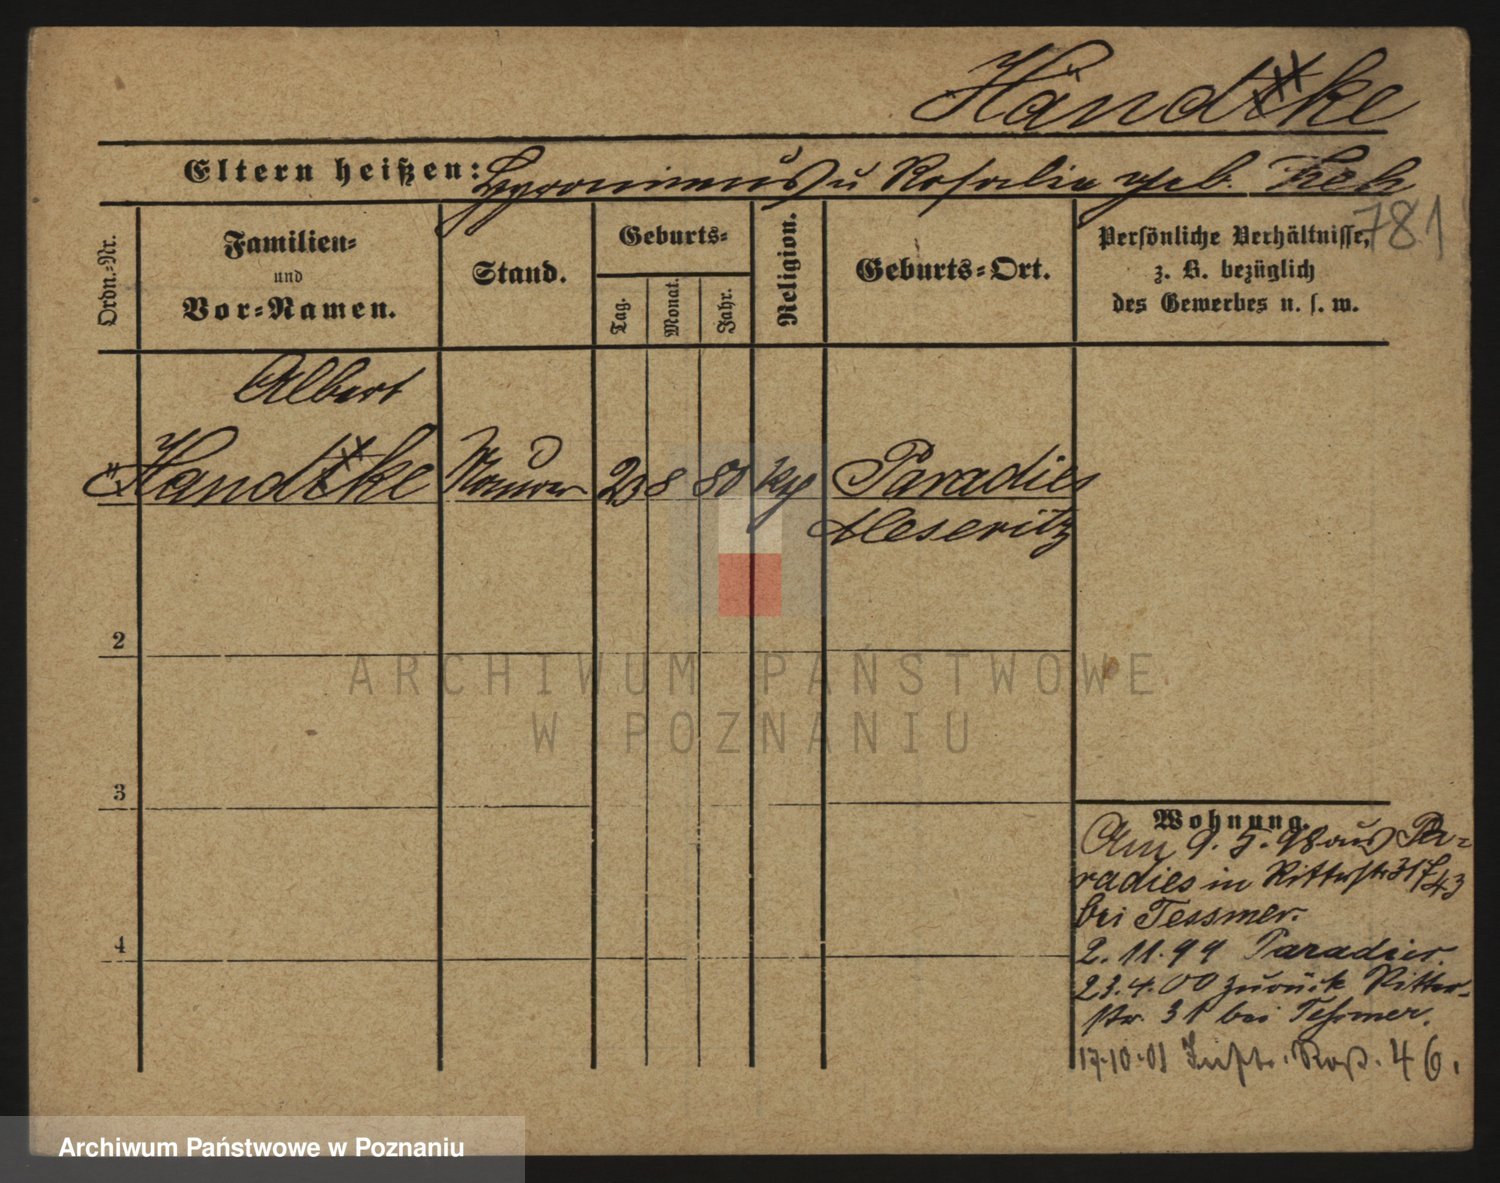 Händtke
Eltern heißen: Hyronimus u Rosalia geb.
781
Ordn.-Nr.
Familien-
und
Vor-Namen.
Stand.
Geburts-
Tag.
Monat.
Jahr.
Religion.
Geburts-Ort.
Persönliche Verhältnisse,
z. B. bezüglich
des Gewerbes u. s. w.
Albert
Händtke Maurer 23 8 80 Paradies
Meseritz
2
3
4
ARCHIWUM PAŃSTWOWE
W POZNANIU
Wohnung.
Am 9. 5. 98 aus Pa-
radies in Ritterstr 31
bei Tessmer.
2. 11. 99 Paradies.
23. 4. 00 zurück Ritter-
str. 31 bei Tessmer.
17.10.01 46.
Archiwum Państwowe w Poznaniu